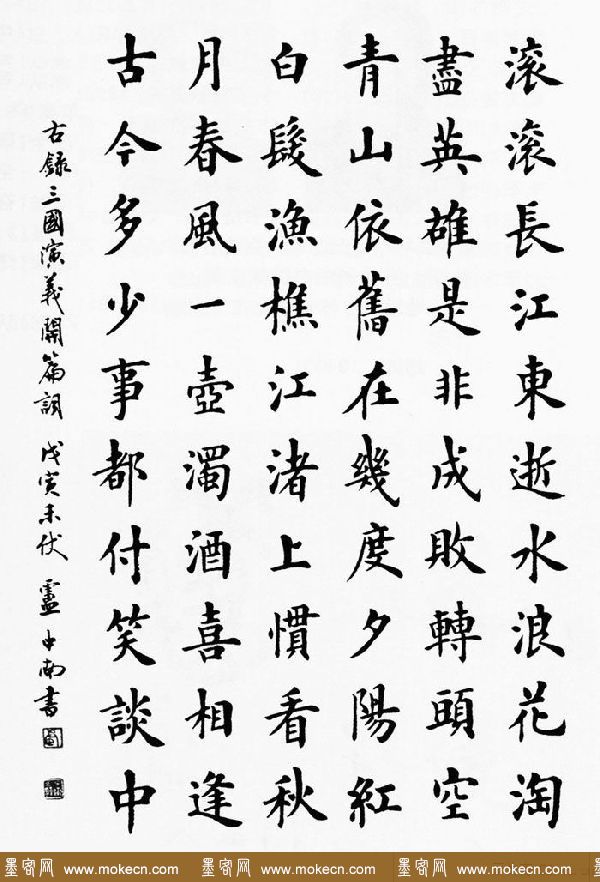 滚滚長江東逝水浪花淘
盡英雄是非成敗轉頭空
青山依舊在幾度夕陽紅
白髮漁樵江渚上慣看秋
月春風一壺濁酒喜相逢
古今多少事都付笑談中
右錄三國演義開篇詞 戊寅末伏 盧中南書
墨客网 www.mokecn.com 墨客网 www.mokecn.com 墨客网 www.mokecn.com